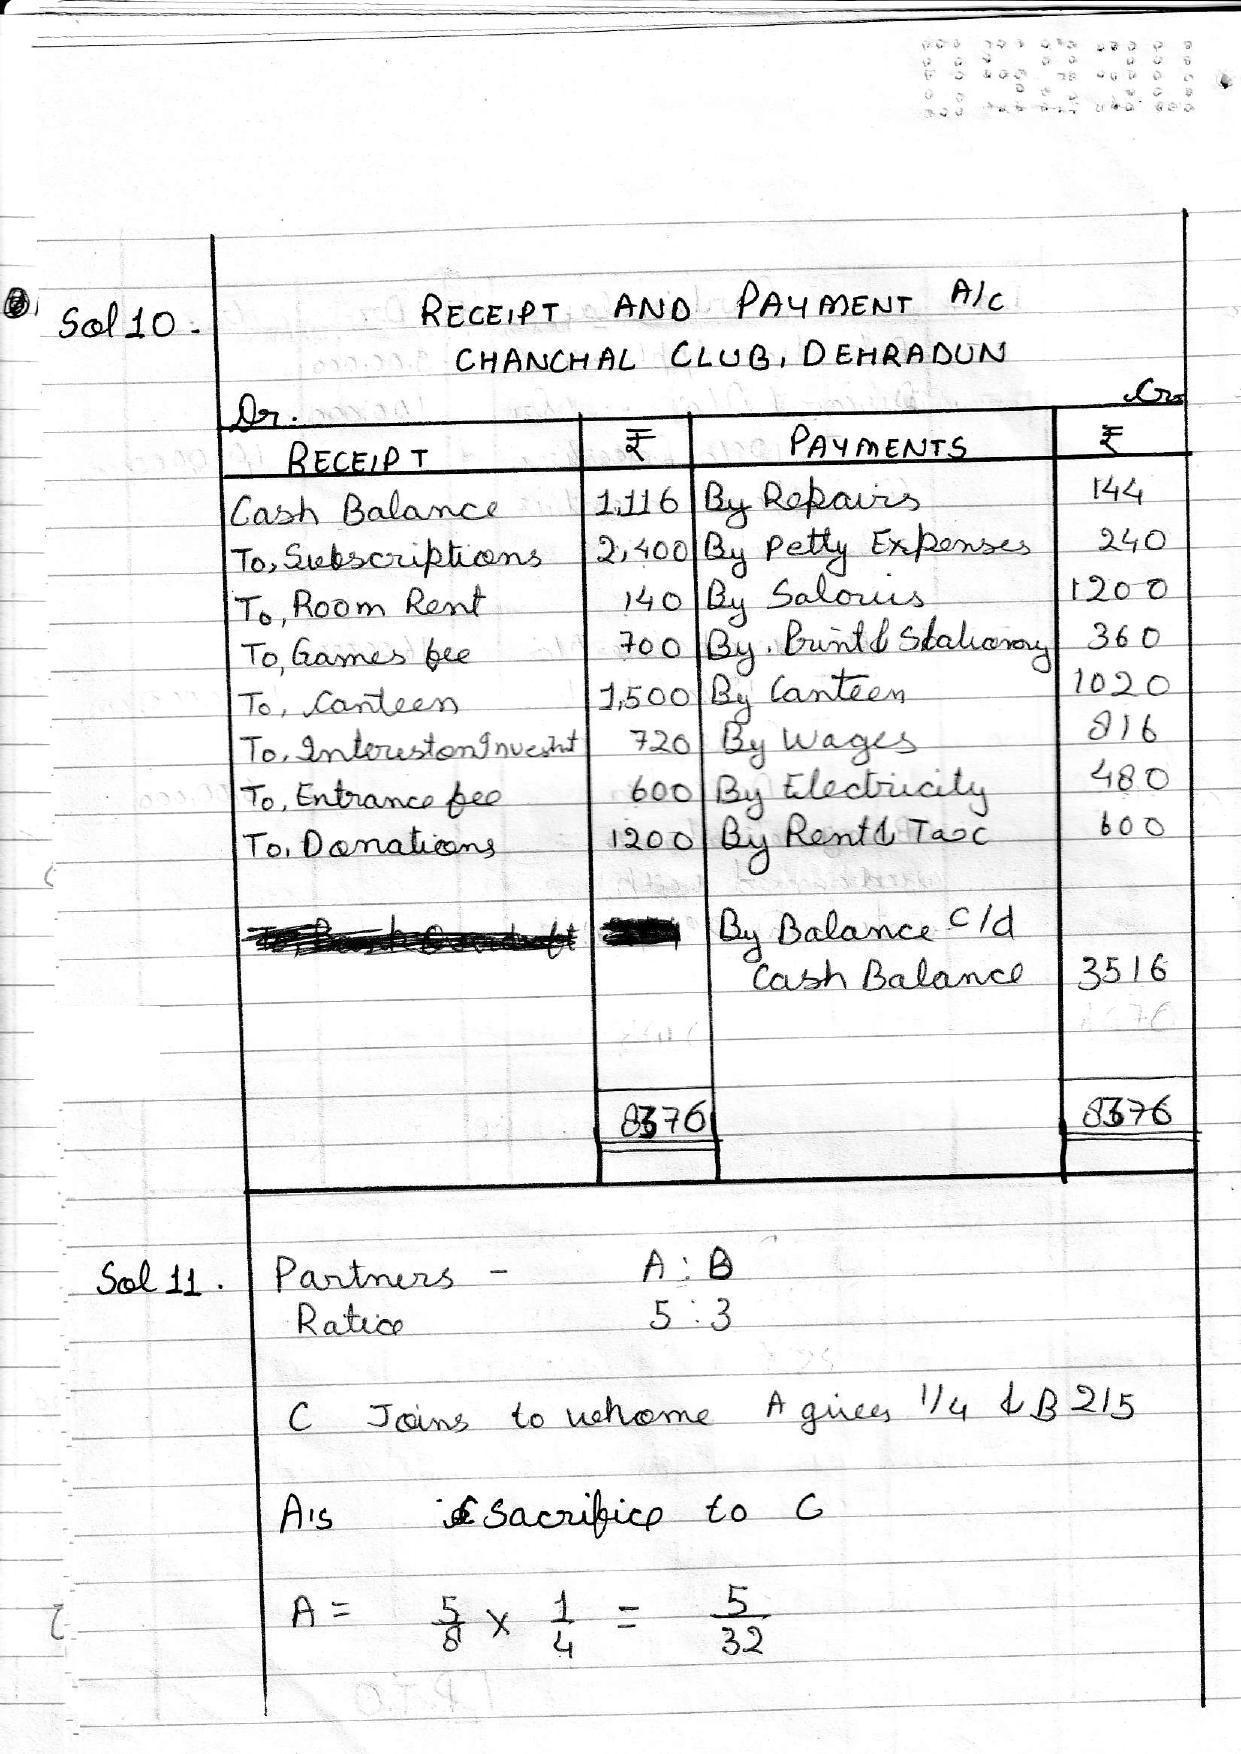 Sol 10 -
RECEIPT AND PAYMENT A/c
CHANCHAL CLUB, DEHRADUN
Dr. Cr.
RECEIPT ₹ PAYMENTS ₹
Cash Balance 1,116 By Repairs 144
To, Subscriptions 2,400 By Petty Expenses 240
To, Room Rent 140 By Salaris 1200
To, Games fee 700 By. Print & Stationary 360
To, Canteen 1,500 By Canteen 1020
To, Interest on Invesht 720 By Wages 816
To, Entrance fee 600 By Electricity 480
To, Donations 1200 By Rent & Tax 600
By Balance C/d
Cash Balance 3516
8376 8376
Sol 11. Partners - A : B
Ratio 5 : 3
C Joins to whome A gives 1/4 & B 2/5
A's Sacrifice to C
A = 5/8 × 1/4 = 5/32